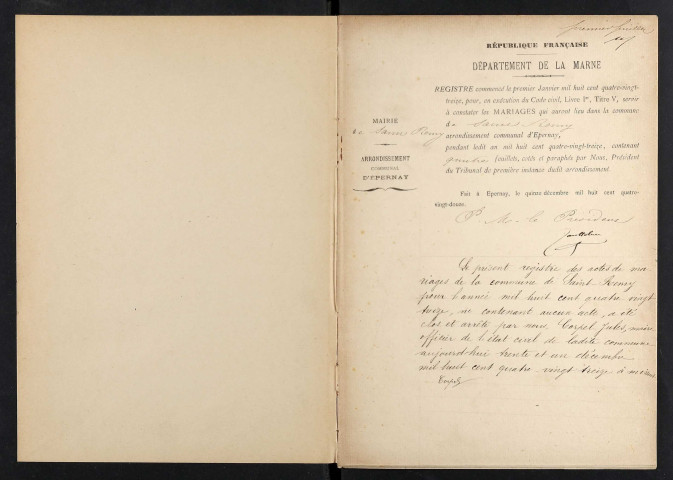 premier feuillet
RÉPUBLIQUE FRANÇAISE
DÉPARTEMENT DE LA MARNE
MAIRIE
de Saint Remy
ARRONDISSEMENT
COMMUNAL
D'ÉPERNAY
REGISTRE commencé le premier Janvier mil huit cent quatre-vingt-
treize, pour, en exécution du Code civil, Livre Ier, Titre V, servir
à constater les MARIAGES qui auront lieu dans la commune
de Saint Remy
arrondissement communal d'Epernay,
pendant ledit an mil huit cent quatre-vingt-treize, contenant
feuillets, cotés et paraphés par Nous, Président
du Tribunal de première instance dudit arrondissement
Fait à Epernay, le quinze décembre mil huit cent quatre-
vingt-douze.
P. M. le Président
Le présent registre des actes de ma-
riages de la commune de Saint Remy
pour l'année mil huit cent quatre vingt-
treize, ne contenant aucun acte, a été
clos et arrêté par nous, Corpel Jules, maire
officier de l'état civil de ladite commune
aujourd'hui trente et un décembre
mil huit cent quatre-vingt treize à
Corpel